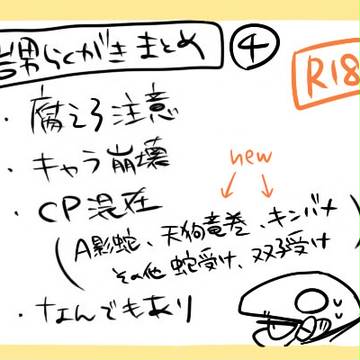 男らくがきまとめ ④
R18
・腐えろ注意
・キャラ崩壊
new
・CP混在
(A影蛇、天狗竜巻、キンバメ
その他 蛇受け、双子受け)
・なんでもあり